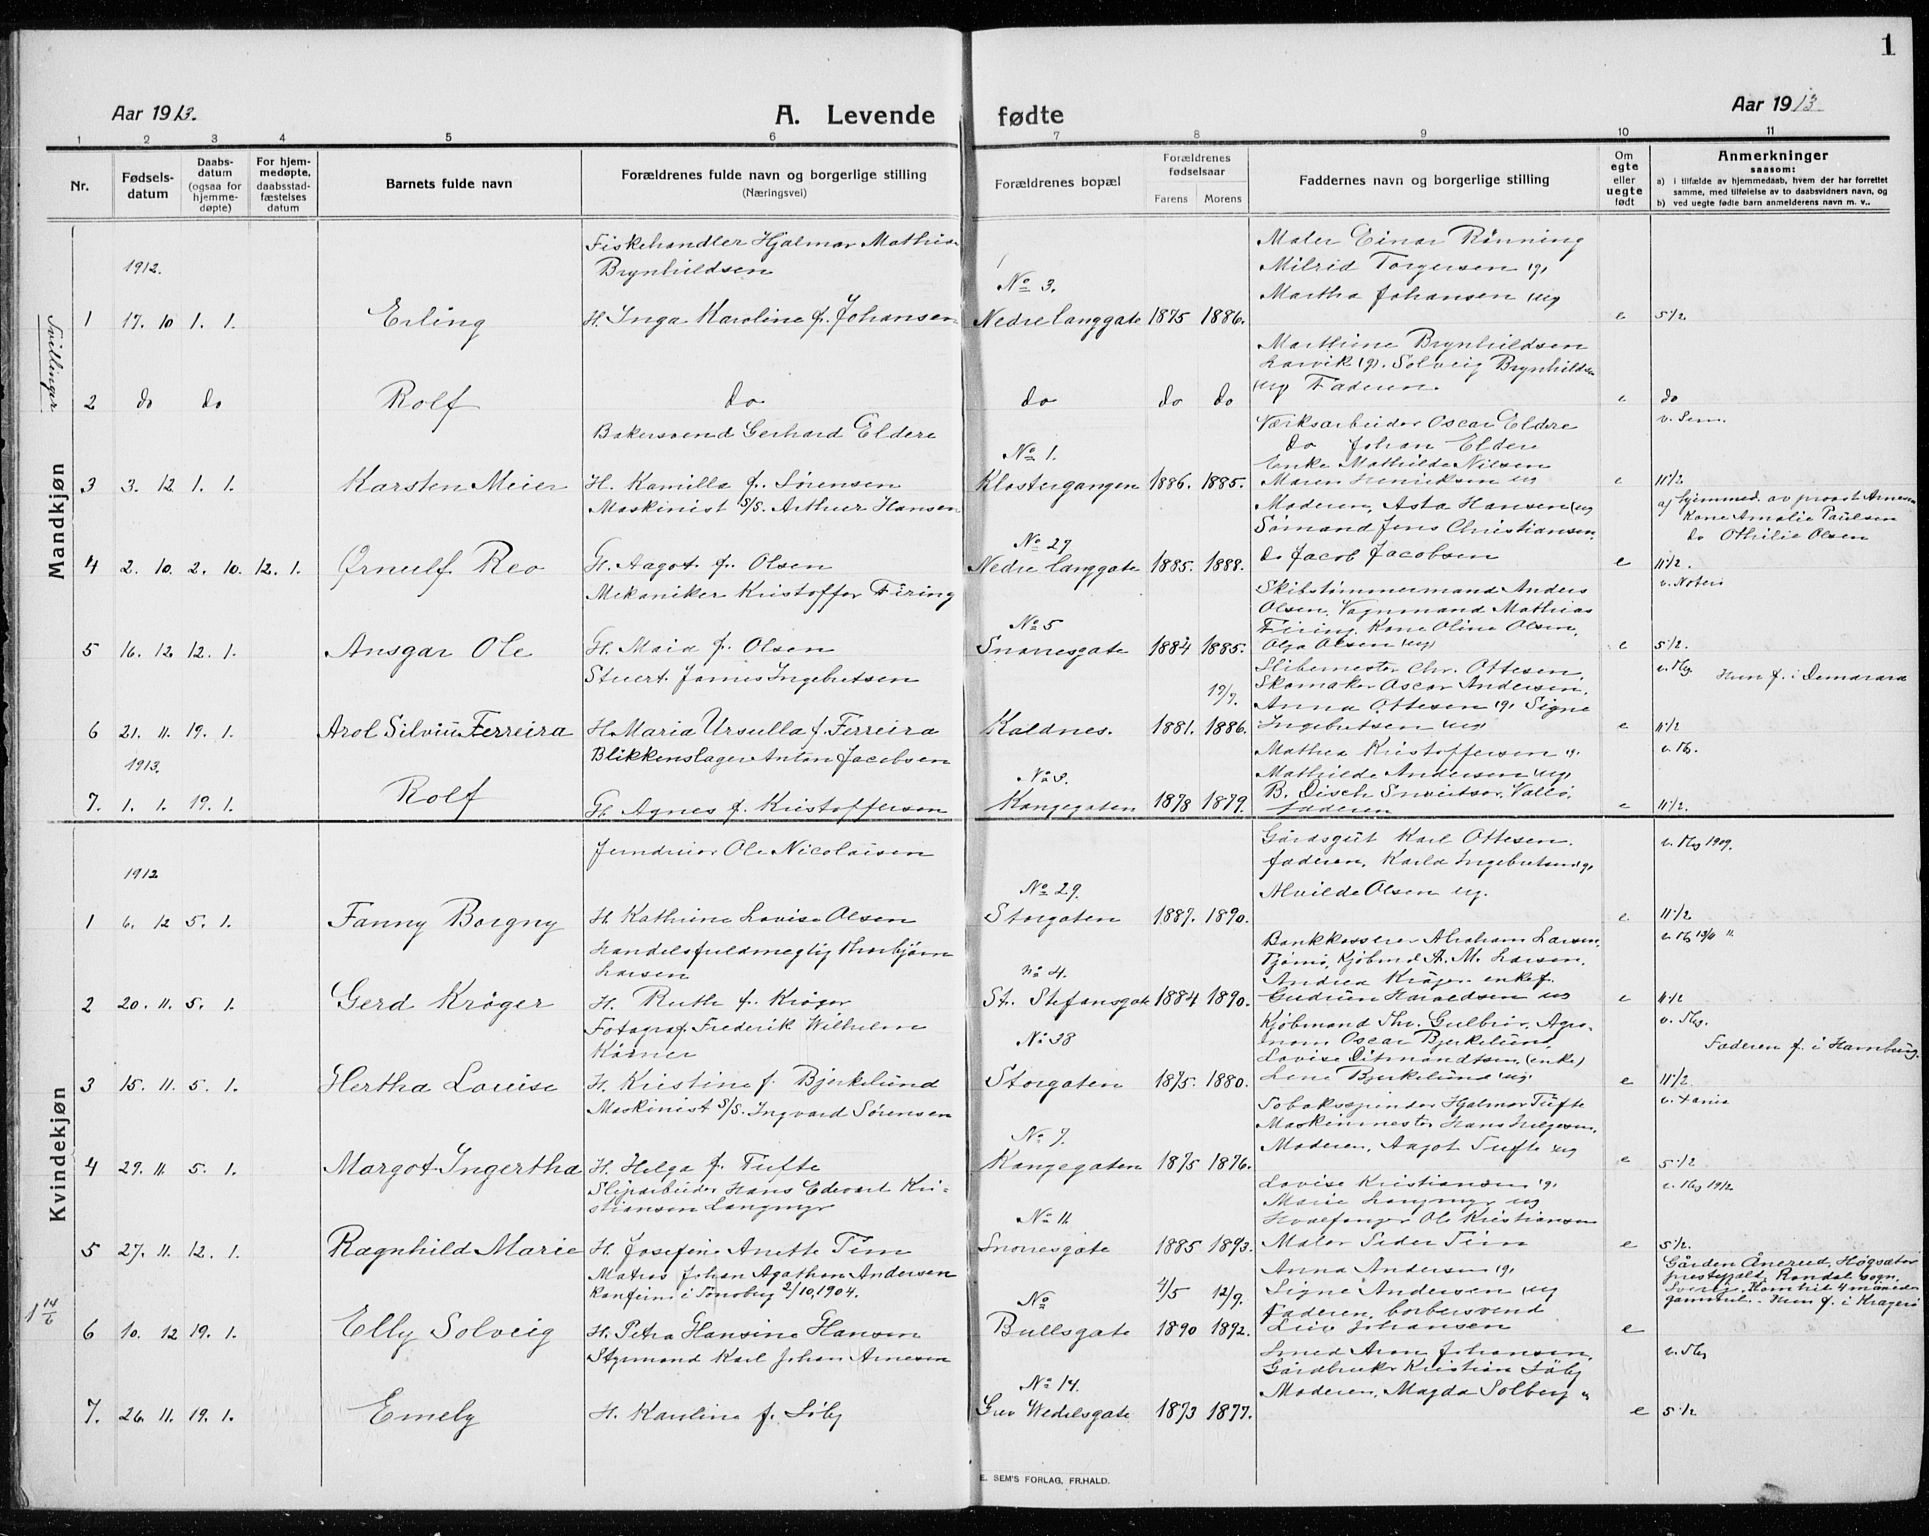 1
Aar 1913.
A. Levende fødte
Aar 1913
1 2 3 4 5 6 7 8 9 10 11
Nr.
Fødsels-
datum
Daabs-
datum
(ogsaa for
hjemme-
døpte)
For hjem-
medøpte,
daabsstad-
fæstelses
datum
Barnets fulde navn
Forældrenes fulde navn og borgerlige stilling
(Næringsvei)
Forældrenes bopæl
Forældrenes
fødselsaar
Farens Morens
Faddernes navn og borgerlige stilling
Om
egte
eller
uegte
født
Anmerkninger
saasom:
a) i tilfælde av hjemmedaab, hvem der har forrettet
samme, med tilføielse av to daabsvidners navn, og
b) ved uegte fødte barn anmelderens navn m. v..
Mandkjøn
Tvillinger
1912.
Fiskehandler Hjalmar Mathias
Brynhildsen
1 17. 10 1. 1. Erling H. Inga Karoline f. Johansen
No 3.
Nedre langgate 1875 1886.
Maler Einar Rønning
Milrid Torgersen
Martha Johansen ug
e 5/2
2 do do Rolf do do do do
Marthine Brynhildsen
Larvik g. Solveig Brynhildsen
ug Faderen.
e do
v. Sem.
Bakersvend Gerhard Eldere
3 3. 12 1. 1. Karsten Meier H. Kamilla f. Sørensen
No 1.
Klostergangen 1886. 1885.
Værksarbeider Oscar Eldere
do Johan Eldere
Enke Mathilde Nilsen
Maren Henriksen ug
e 11/2
Maskinist S/S. Arthur Hansen
4 2. 10. 2. 10. 12. 1. Ørnulf Reo H. Aagot f. Olsen
No 27
Nedre langgate 1885. 1888.
Moderen, Asta Hansen ug
Sømand Jens Christiansen
do Jacob Jacobsen
e
a) hjemmed. av provst Arnesen
Kone Amalie Paulsen
do Othilie Olsen
11/2.
v. Noterø
Mekaniker Kristoffer Firing
5 16. 12. 12. 1. Ansgar Ole H. Maia f. Olsen
No 5
Snonesgate 1884 1885.
Skibstømmermand Anders
Olsen, Vognmand Mathias
Firing, Kone Oline Olsen,
Olga Olsen ug
e 5/2.
v. Tbg. Hun f. i Demarara
Stuert James Ingebretsen
6 21. 11. 19. 1. Arol Silviu Ferreira H. Maria Ursulla f. Ferreira
Kaldnes. 1881. 19/9. 1886.
Slibemester Chr. Ottesen,
Skomaker Oscar Andersen.
Anna Ottesen g. Signe
Ingebretsen ug
e 11/2
v. Tbg.
1913.
Blikkenslager Anton Jacobsen
7. 1. 1. 19. 1. Rolf H. Agnes f. Kristoffersen
Kongegaten 1878 1879.
Mathea Kristoffersen g.
Mathilde Andersen ug,
B. Disch Vallø,
faderen
e 11/2.
Kvindekjøn
1912
Ole Nicolaisen
1 6. 12 5. 1. Fanny Borgny H. Kathrine Lovise Olsen
No 29.
Storgaten 1887. 1890.
Gårdsgut Karl Ottesen.
faderen, Karla Ingebretsen g,
Alvilde Olsen ug.
v. Tbg 1909.
e 11/2
Handelsfuldmegtig Thorbjørn
Larsen
2 20. 11. 5. 1. Gerd Krøger H. Ruth f. Krøger
No 4.
St. Stefansgate 1884 1890.
Bankkasserer Abraham Larsen,
Tjømø, Kjøbmd A. M. Larsen,
Andrea Krøger enkef.
Gudrun Haraldsen ug
v. Tbg 13/11 "
e 11/2
v. Tbg.
Fotograf Frederik Wilhelm
Körner
3 15. 11. 5. 1. Hertha Louise H. Kristine f. Bjerkelund
No 38
Storgaten 1875. 1880.
Kjøbmand Thv. Gulbrør, Agro-
nom Oscar Bjerkelund,
Lovise Ditmandtsen (enke)
Lene Bjerkelund ug.
Faderen f. i Hamburg.
e 11/2
Maskinist S/S. Ingvard Sørensen
4 29. 11. 5. 1. Margot Ingertha H. Helga f. Tufte
No 7.
Kongegaten 1875 1876.
Tobaksspinder Hjalmar Tufte
Maskinmester Hans Helgesen,
Moderen, Aagot Tufte ug
e 5/2
Sliparbeider Hans Edevart Kri-
stiansen Langmyr
5 27. 11. 12. 1. Ragnhild Marie H. Josefine Anette Tim
No 11.
Snonesgate 1885 1893.
Lovise Kristiansen g.
Marie Langmyr ug
Hvalfanger Ole Kristiansen
Maler Peder Tim
v. Tbg 1912.
e 5/2.
1 14/6
Matros Johan Agathon Andersen
Konfirm. i Tønsbrg 2/10, 1904.
6 10. 12 19. 1. Elly Solveig H. Petra Hansine Hansen
No
Bullsgate 4/5 1890 12/9. 1892.
Anna Andersen g.
Signe Andersen ug
Faderen, barbersvend
Johansen
e
Gården Ånerud, Høgsäter
prestegjæld, Rendal sogn,
Sverig. Kom hit 4 måneder
gammel. Hun f. i Kragerø
v. Tbg
Styrmand Karl Johan Arnesen
7. 26. 11. 19. 1. Emely H. Karoline f. Søby
No 14.
Grev Wedelsgate 1873 1877.
Smed Aron Johansen,
Gårdbruker Kristian Søby
Moderen, Magda Solberg "
e 5/2
E. SEM'S FORLAG, FR.HALD.